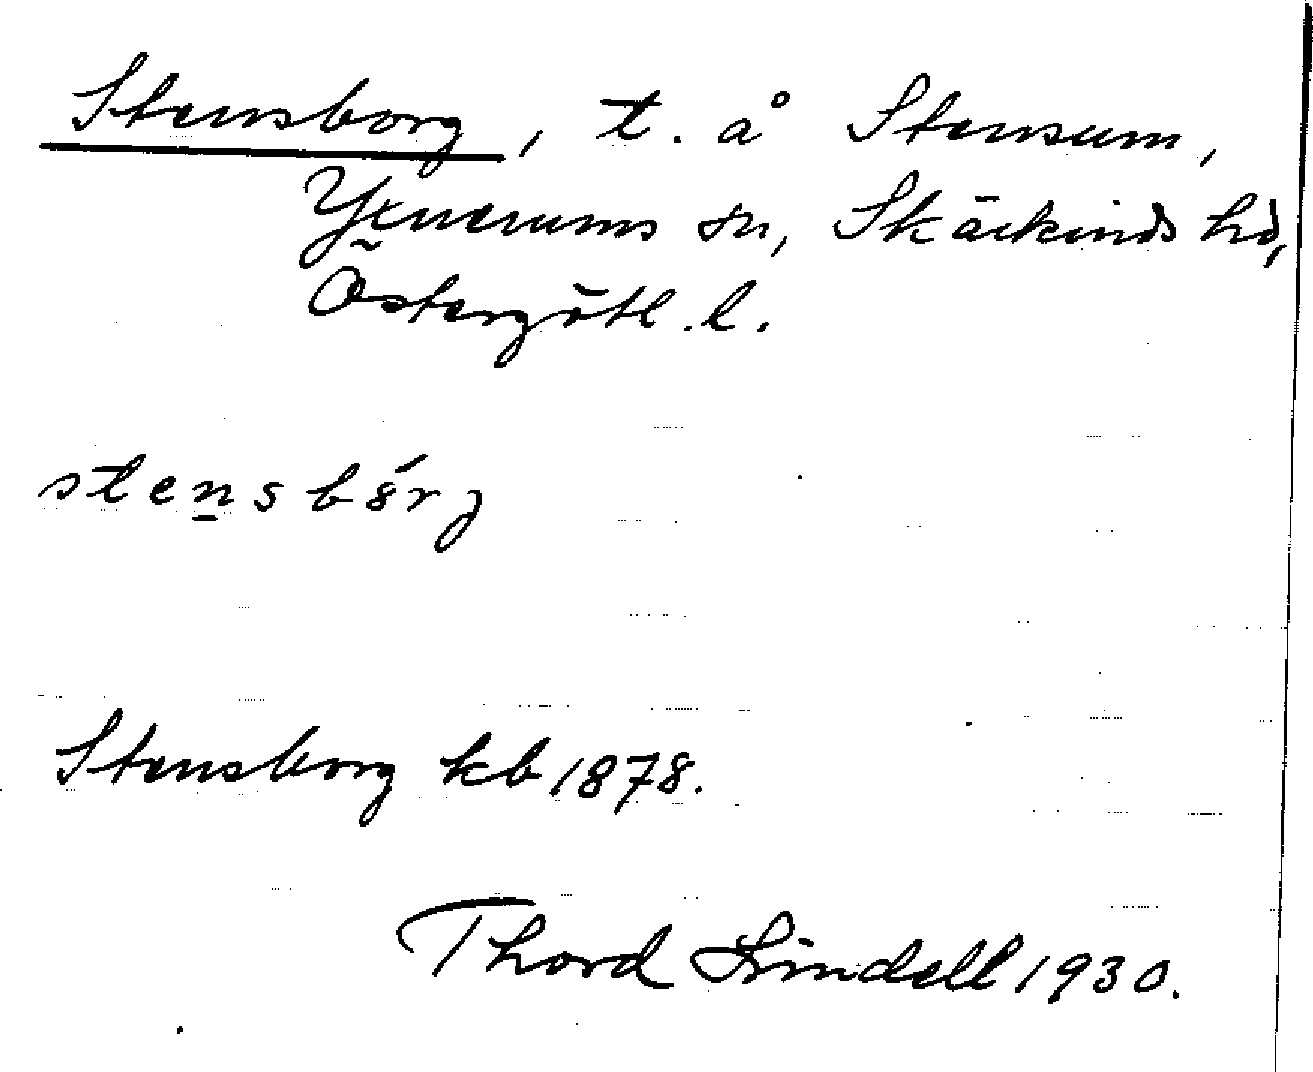 Stensborg, t. å Stensum,
Yxnerums sn, Skärkinds hd,
Östergötl. l.
stensbórj
Stensborg kb 1878.
Thord Lindell 1930.